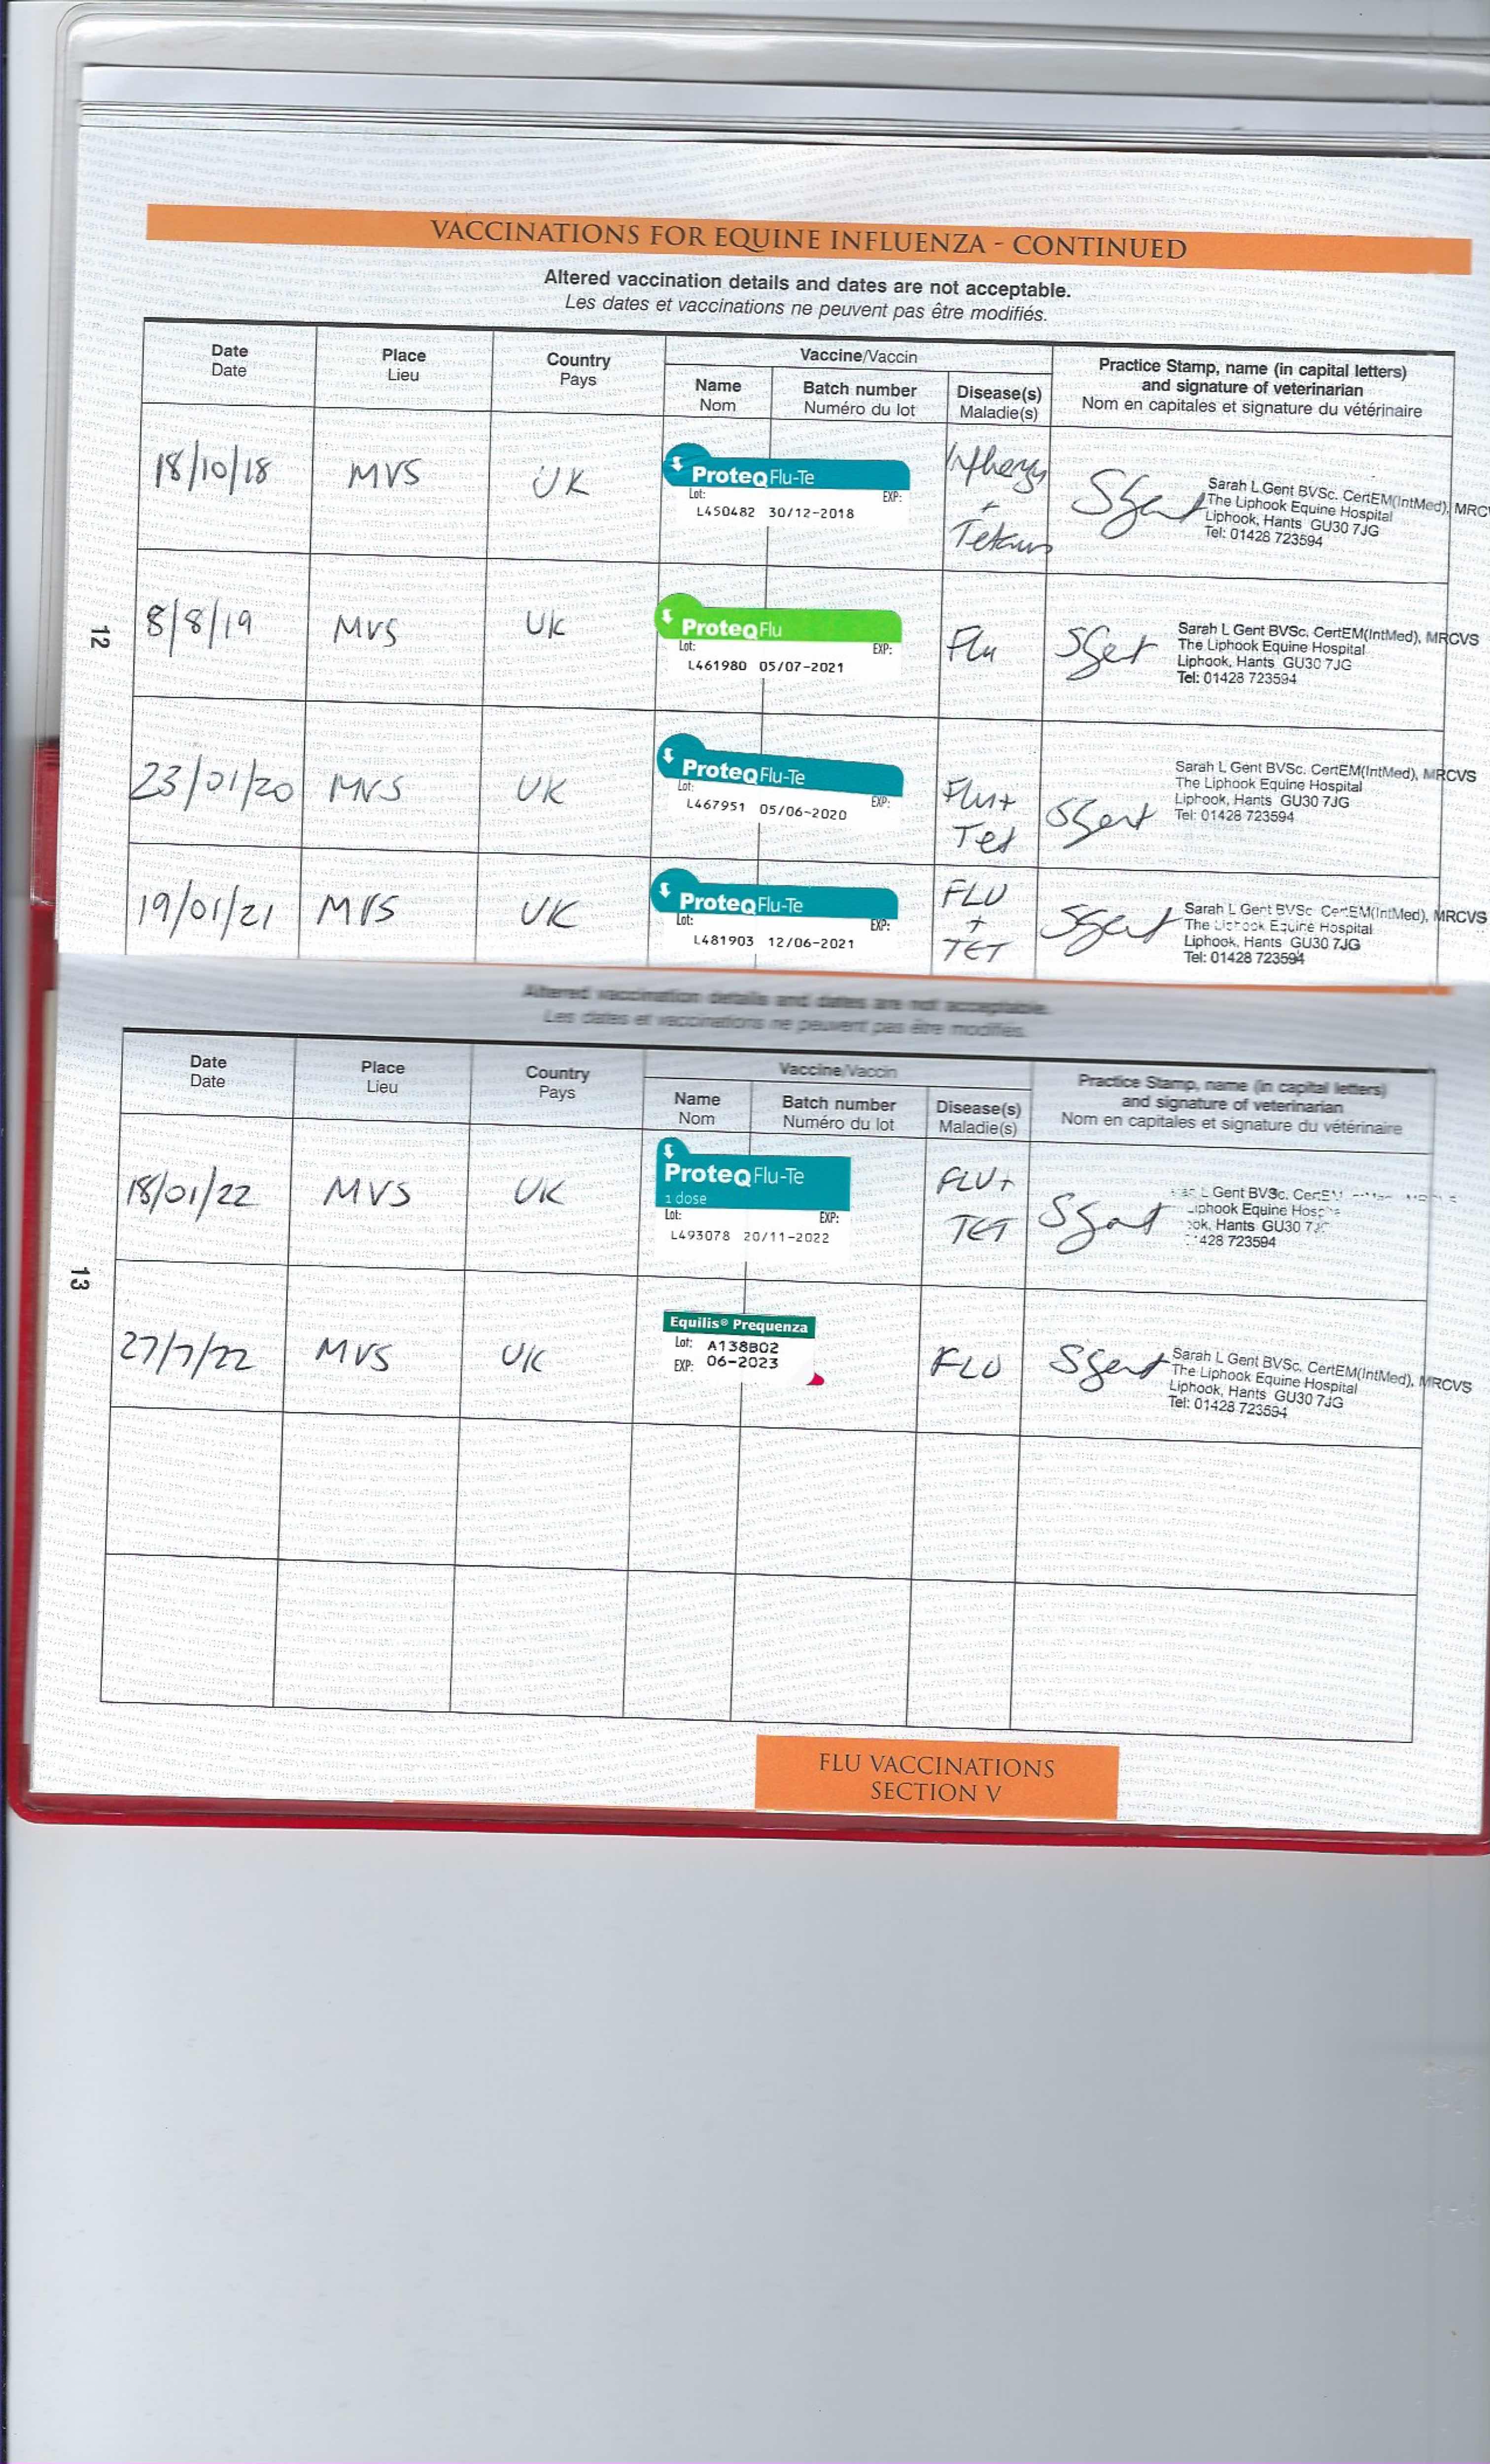 VACCINATIONS FOR EQUINE INFLUENZA - CONTINUED
Altered vaccination details and dates are not acceptable.
Les dates et vaccinations ne peuvent pas être modifiés.
Date
Date
Place
Lieu
Country
Pays
Vaccine/Vaccin
Name
Nom
Batch number
Numéro du lot
Disease(s)
Maladie(s)
Practice Stamp, name (in capital letters)
and signature of veterinarian
Nom en capitales et signature du vétérinaire
18/10/18
MVS
UK
ProteqFlu-Te
Lot: EXP:
L450482 30/12-2018
+
Sarah L Gent BVSc. CertEM(IntMed), MRCV
The Liphook Equine Hospital
Liphook, Hants GU30 7JG
Tel: 01428 723594
12
8/8/19
MVS
UK
ProteqFlu
Lot: EXP:
L461980 05/07-2021
Flu
SGent
Sarah L Gent BVSc. CertEM(IntMed), MRCVS
The Liphook Equine Hospital
Liphook, Hants GU30 7JG
Tel: 01428 723594
23/01/20
MVS
UK
ProteqFlu-Te
Lot: EXP:
L467951 05/06-2020
Flu+
Tet
SGent
Sarah L Gent BVSc. CertEM(IntMed), MRCVS
The Liphook Equine Hospital
Liphook, Hants GU30 7JG
Tel: 01428 723594
19/01/21
MVS
UK
ProteqFlu-Te
Lot: EXP:
L481903 12/06-2021
FLU
+
TET
SGent
Sarah L Gent BVSc CertEM(IntMed), MRCVS
The Liphook Equine Hospital
Liphook, Hants GU30 7JG
Tel: 01428 723594
Altered vaccination details and dates are not acceptable.
Les dates et vaccinations ne peuvent pas être modifiés.
Date
Date
Place
Lieu
Country
Pays
Vaccine/Vaccin
Name
Nom
Batch number
Numéro du lot
Disease(s)
Maladie(s)
Practice Stamp, name (in capital letters)
and signature of veterinarian
Nom en capitales et signature du vétérinaire
18/01/22
MVS
UK
ProteqFlu-Te
1 dose
Lot: EXP:
L493078 20/11-2022
FLU+
TET
SGent
L Gent BVSc.
Liphook Equine
Hants GU30
428 723594
13
27/7/22
MVS
UK
Equilis® Prequenza
Lot: A138B02
EXP: 06-2023
FLU
SGent
Sarah L Gent BVSc, CertEM(IntMed), MRCVS
The Liphook Equine Hospital
Liphook, Hants GU30 7JG
Tel: 01428 723594
FLU VACCINATIONS
SECTION V